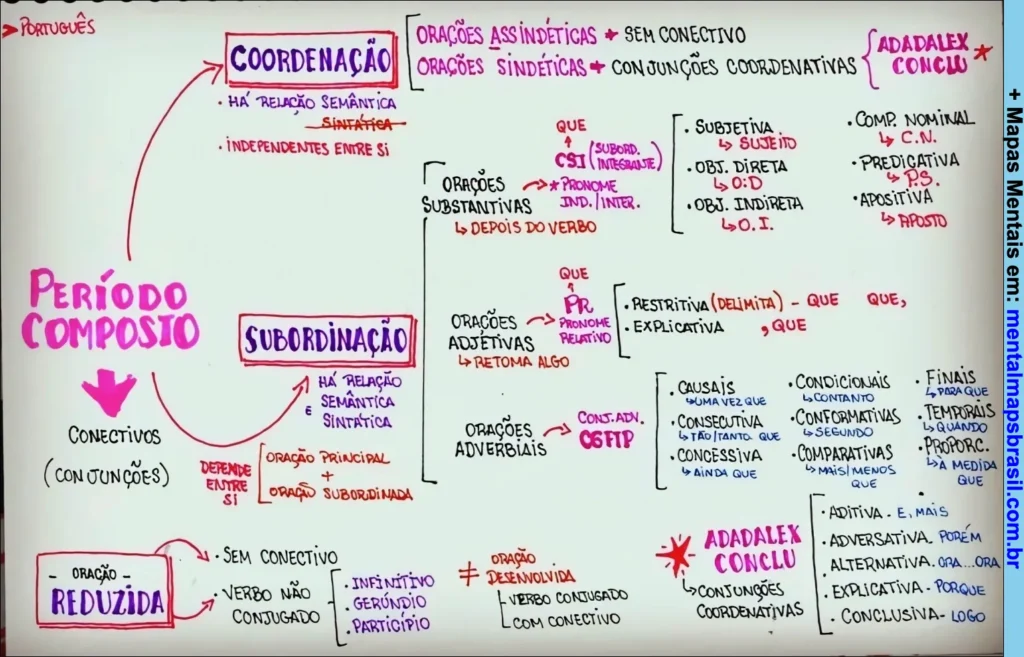 > PORTUGUÊS
COORDENAÇÃO
• HÁ RELAÇÃO SEMÂNTICA
SINTÁTICA
• INDEPENDENTES ENTRE SI
ORAÇÕES ASSINDÉTICAS → SEM CONECTIVO
ORAÇÕES SINDÉTICAS → CONJUNÇÕES COORDENATIVAS
ADADALEX
CONCLU *
PERÍODO
COMPOSTO
CONECTIVOS
(CONJUNÇÕES)
SUBORDINAÇÃO
HÁ RELAÇÃO
SEMÂNTICA
E
SINTÁTICA
DEPENDE
ENTRE
SI
ORAÇÃO PRINCIPAL
+
ORAÇÃO SUBORDINADA
ORAÇÕES
SUBSTANTIVAS
↳ DEPOIS DO VERBO
QUE
CSI (SUBORD.
INTEGRANTE)
* PRONOME
IND./INTER.
• SUBJETIVA
↳ SUJEITO
• OBJ. DIRETA
↳ O:D
• OBJ. INDIRETA
↳ O.I.
• COMP. NOMINAL
↳ C.N.
• PREDICATIVA
↳ P.S.
• APOSITIVA
↳ APOSTO
ORAÇÕES
ADJETIVAS
↳ RETOMA ALGO
QUE
PR
PRONOME
RELATIVO
• RESTRITIVA (DELIMITA) - QUE QUE,
• EXPLICATIVA , QUE
ORAÇÕES
ADVERBIAIS
CONJ. ADV.
C6FTP
• CAUSAIS
↳ UMA VEZ QUE
• CONSECUTIVA
↳ TÃO/TANTO. QUE
• CONCESSIVA
↳ AINDA QUE
• CONDICIONAIS
↳ CONTANTO
• CONFORMATIVAS
↳ SEGUNDO
• COMPARATIVAS
↳ MAIS/MENOS
QUE
• FINAIS
↳ PARA QUE
• TEMPORAIS
↳ QUANDO
• PROPORC.
↳ À MEDIDA
QUE
- ORAÇÃO -
REDUZIDA
• SEM CONECTIVO
• VERBO NÃO
CONJUGADO
• INFINITIVO
• GERÚNDIO
• PARTICÍPIO
≠ ORAÇÃO
DESENVOLVIDA
VERBO CONJUGADO
COM CONECTIVO
* ADADALEX
CONCLU
↳ CONJUNÇÕES
COORDENATIVAS
• ADITIVA - E, MAIS
• ADVERSATIVA. PORÉM
• ALTERNATIVA. ORA...ORA
• EXPLICATIVA - PORQUE
• CONCLUSIVA - LOGO
+ Mapas Mentais em: mentalmapsbrasil.com.br